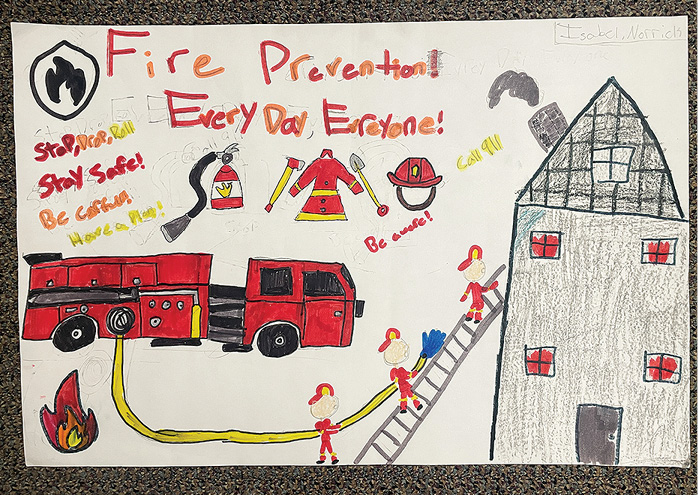 Isabel,
Fire Prevention!
Every Day, Everyone!
Stop, Drop, Roll
Stay Safe!
Be
Have a Plan!
Call 911
Be aware!